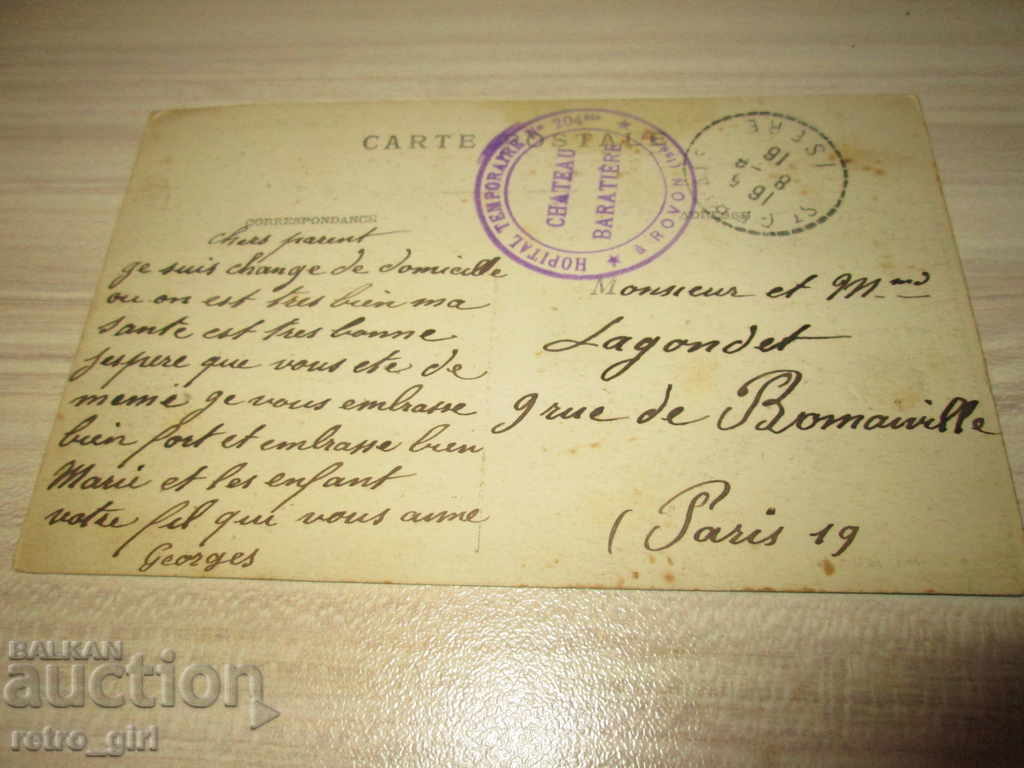 CARTE POSTALE
HOPITAL TEMPORAIRE N° 204 bis
CHATEAU
BARATIÈRE
à ROVON (Isère)
ISERE
16
8 -5
16
CORRESPONDANCE
ADRESSE
chers parent
je suis change de domicille
ou on est tres bien ma
sante est tres bonne
jespere que vous ete de
meme je vous embrasse
bien fort et embrasse bien
Marie et les enfant
votre fil qui vous aime
Georges
Monsieur et Mme
Lagondet
9 rue de Romainville
(Paris 19
BALKAN
auction
retro_girl